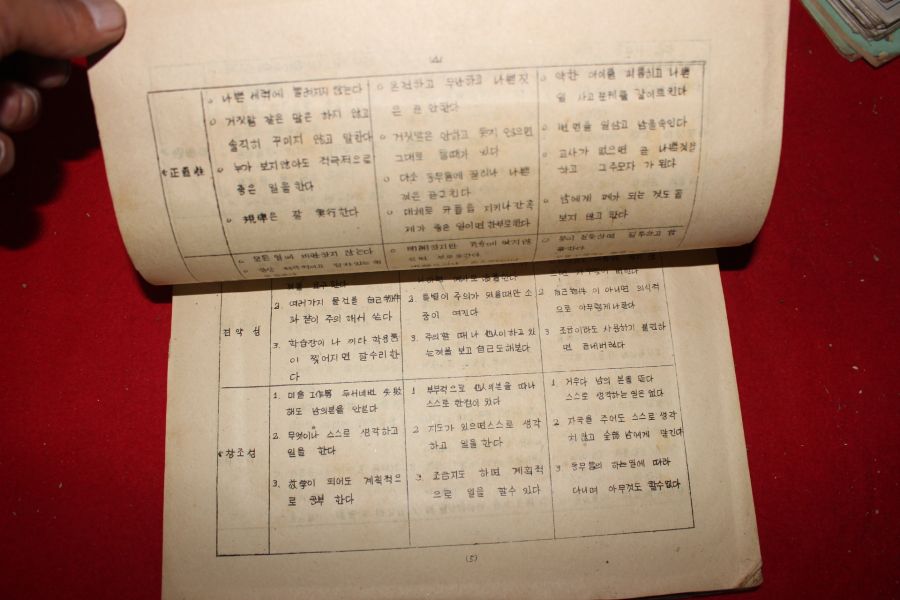 (4)
正直性
o 나쁜 세력에 물려지지 않는다
o 거짓말 같은 말은 하지 않고
솔직히 꾸미지 않고 말한다
o 누가 보지않아도 적극적으로
좋은 일을 한다
o 規律은 잘 実行한다
o 모든 일에 비관하지 않는다
o 온건하고 무난하고 나쁜짓
은 곧 안한다
o 거짓말은 안하고 묻지 않으면
그대로 둘때가 있다
o 다소 동무들에 끌리나 나쁜
것은 곧고친다
o 대체로 규률을 지키나 간혹
제가 좋은 일이면
o 明朗하지만
o 약한 아이를 괴롭히고 나쁜
일 사고문제를 잘이르킨다
o 번번을 일삼고 남을속인다
o 교사가 없으면 곧 나쁜짓을
하고 그주모자 가 된다
o 남에게 폐가 되는 것도 돌
보지 않고 한다
검약성
2. 여러가지 물건을 自己物件
과 같이 주의 해서 쓴다
3. 학습장이 나 끼타 학용품
이 찢어지면 잘수리한
다
2. 특별이 주의가 되울때만 소
중이 여긴다
3. 주의할 때나 他人이하고 있
는것을 보고 自己도해본다
2. 自己物件 이 아니면 의식적
으로 아무렇게나쓴다
3. 조금이라도 사용하기 불편하
면 곧내버린다
창조성
1. 미술 工作等 두서너번 失敗
해도 남의본을 안본다
2. 무엇이나 스스로 생각하고
일을 한다
3. 放学이 되어도 계획적으
로 공부 한다
1. 부분적으로 他人의본을 따나
스스로 한점이 있다
2. 지도가 있으면스스로 생각
하고 일을 한다
3. 조금지도 하면 계획적
으로 일을 할수 있다
1. 거우다 남의 본을 뜬다
스스로 생각하는 일은 없다
2. 자극을 주어도 스스로 생각
치 않고 全部 남에게 맡긴다
3. 동무들의 하는일에 따라
다니며 아무것도 할수없다
(5)